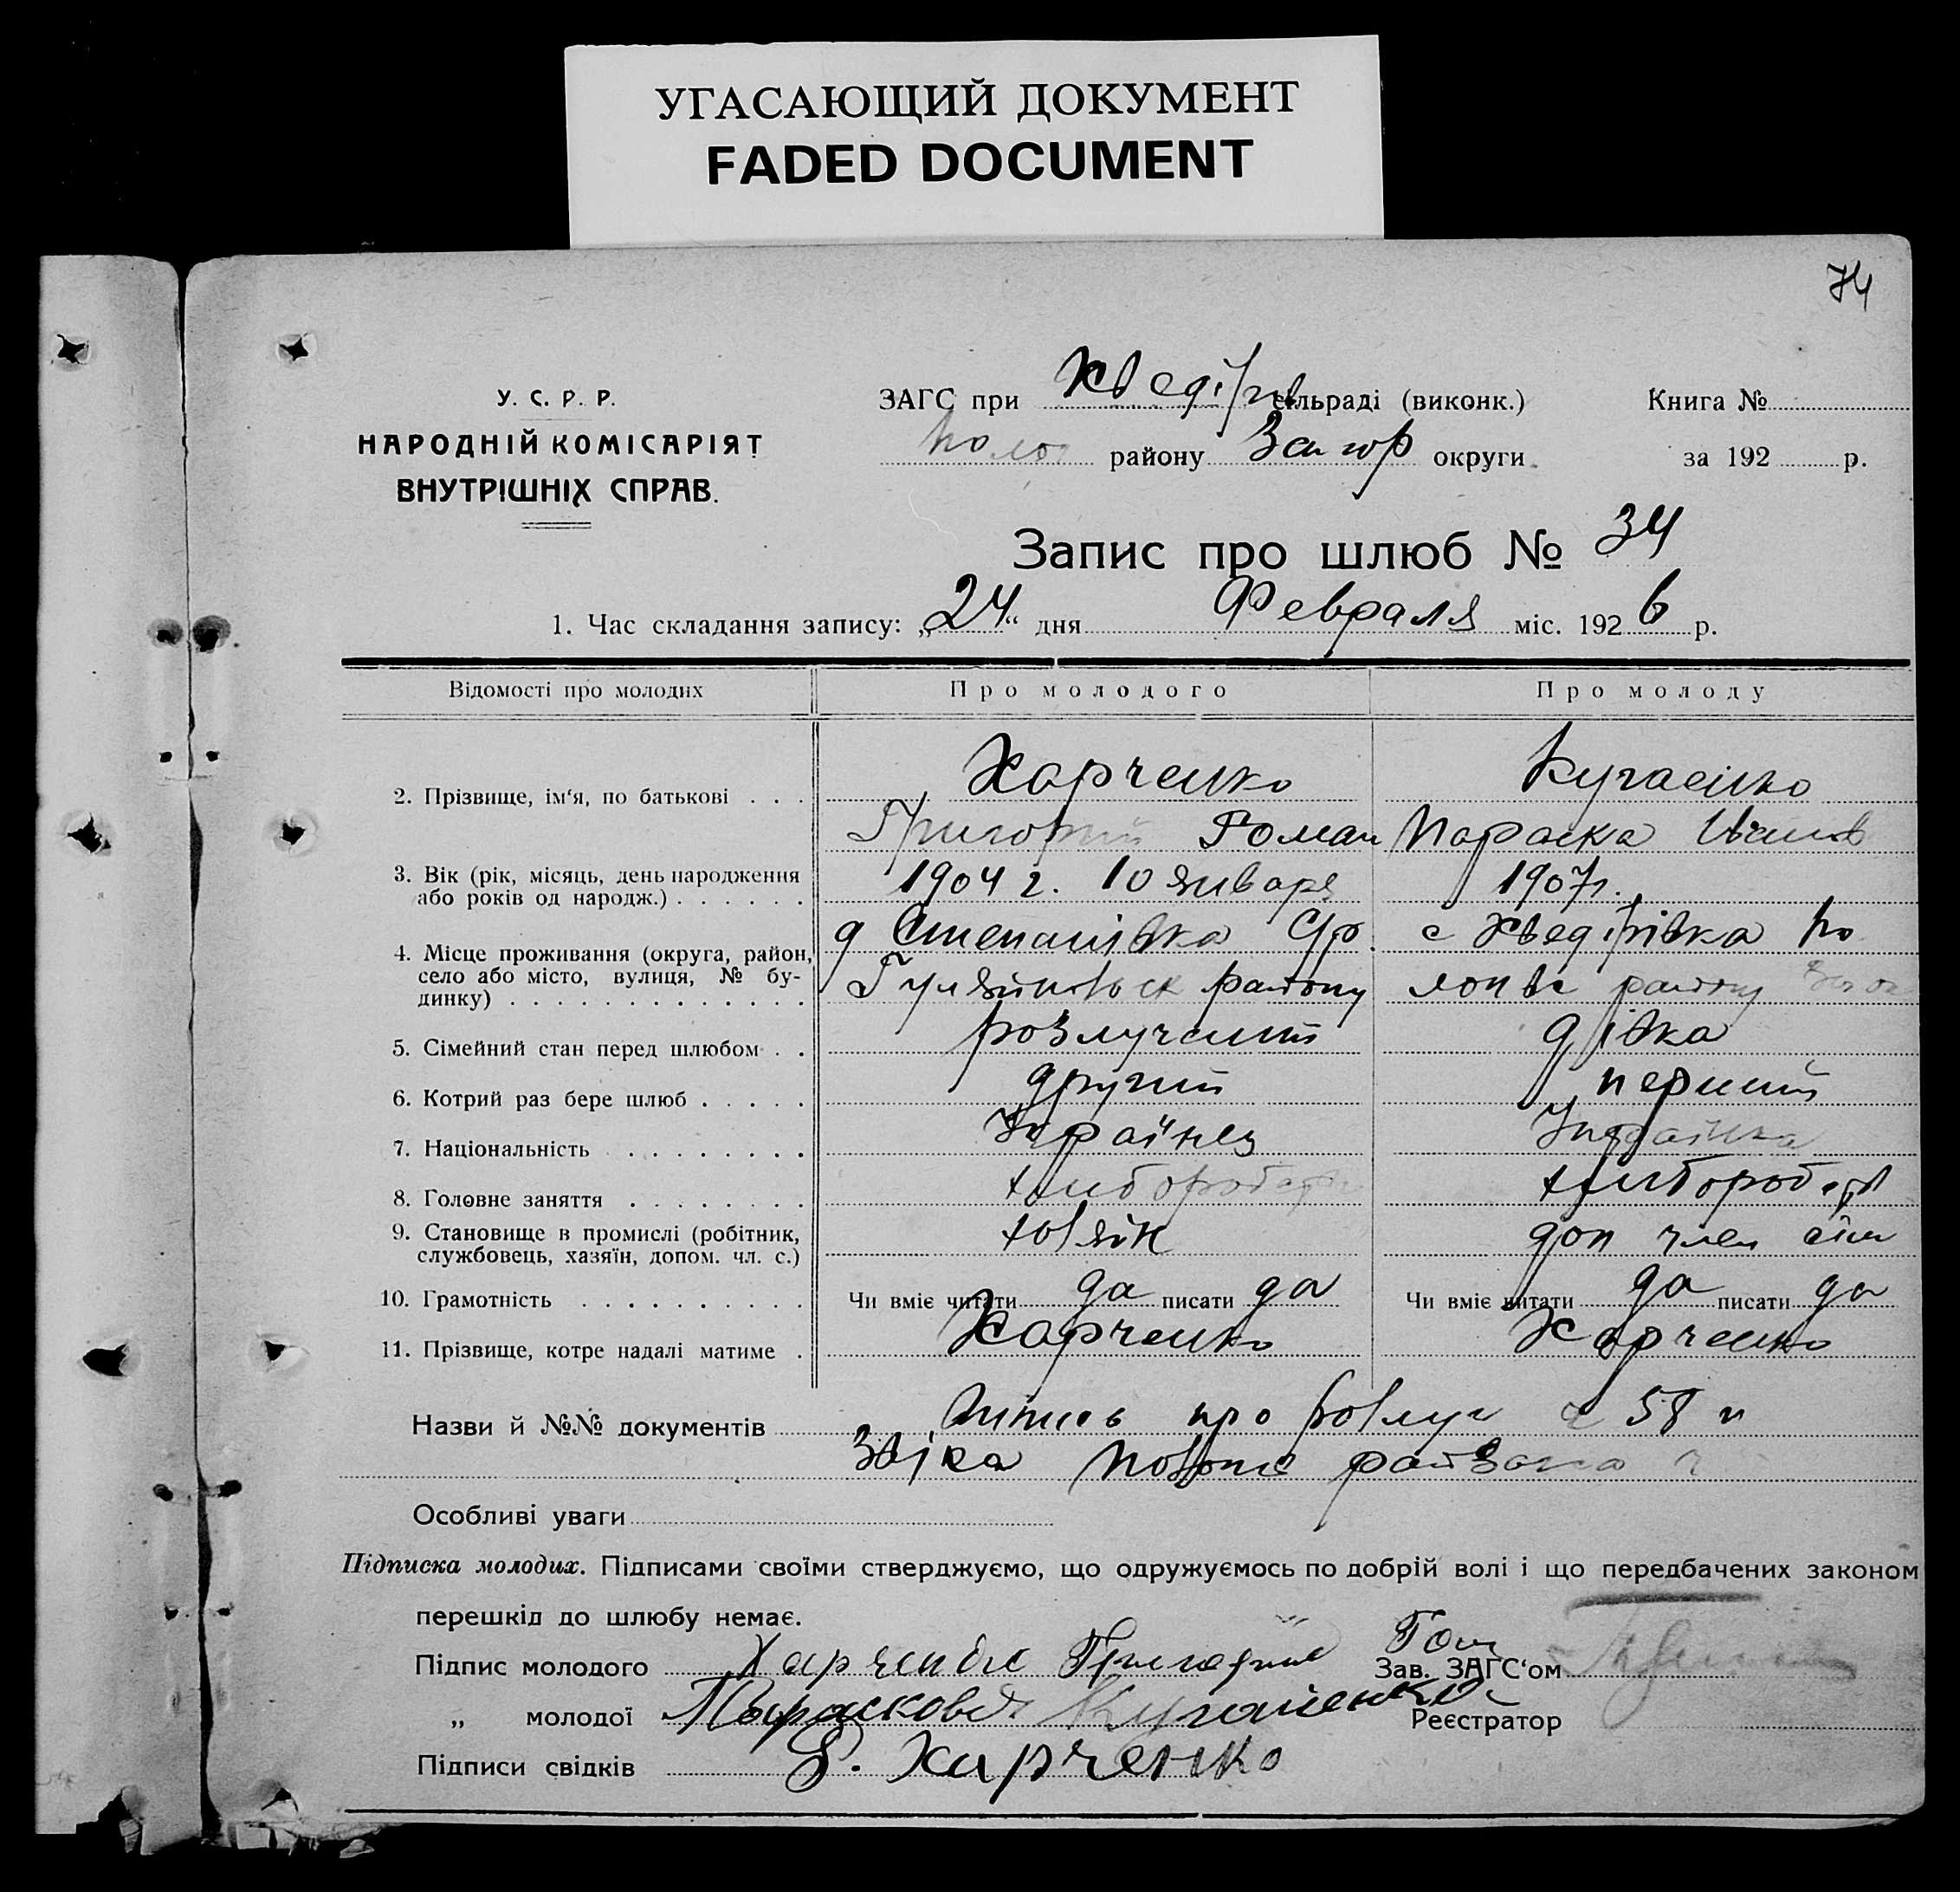 УГАСАЮЩИЙ ДОКУМЕНТ
FADED DOCUMENT
74
У. С. Р. Р.
НАРОДНІЙ КОМІСАРІЯТ
ВНУТРІШНІХ СПРАВ.
ЗАГС при Хведірів сільраді (виконк.) Книга №
Полог району Запор округи за 192 р.
Запис про шлюб № 34
1. Час складання запису: „24“ дня Февраля міс. 1926 р.
Відомості про молодих Про молодого Про молоду
2. Прізвище, ім‘я, по батькові . . . Харченко
Григорій Роман Параска Іванів
3. Вік (рік, місяць, день народження або років од народж.) . . . . . . 1904 г. 10 января 1907 г.
4. Місце проживання (округа, район, село або місто, вулиця, № будинку) . . . . . . . . . . . . .
д Степанівка с Хведірівка По
району логівс району
5. Сімейний стан перед шлюбом . . розлучений дівка
6. Котрий раз бере шлюб . . . . . другий перший
7. Національність . . . . . . . . Українец Українка
8. Головне заняття . . . . . . . . хлибороб хлибороб
9. Становище в промислі (робітник, службовець, хазяїн, допом. чл. с.) хозяїн доп член сім
10. Грамотність . . . . . . . . . . Чи вміє читати да писати да Чи вміє читати да писати да
11. Прізвище, котре надалі матиме . Харченко Харченко
Назви й №№ документів про розлуч 58
Особливі уваги
Підписка молодих. Підписами своїми стверджуємо, що одружуємось по добрій волі і що передбачених законом
перешкід до шлюбу немає.
Підпис молодого Харченко Григорий Зав. ЗАГС‘ом
„ молодої Реєстратор
Підписи свідків Харченко